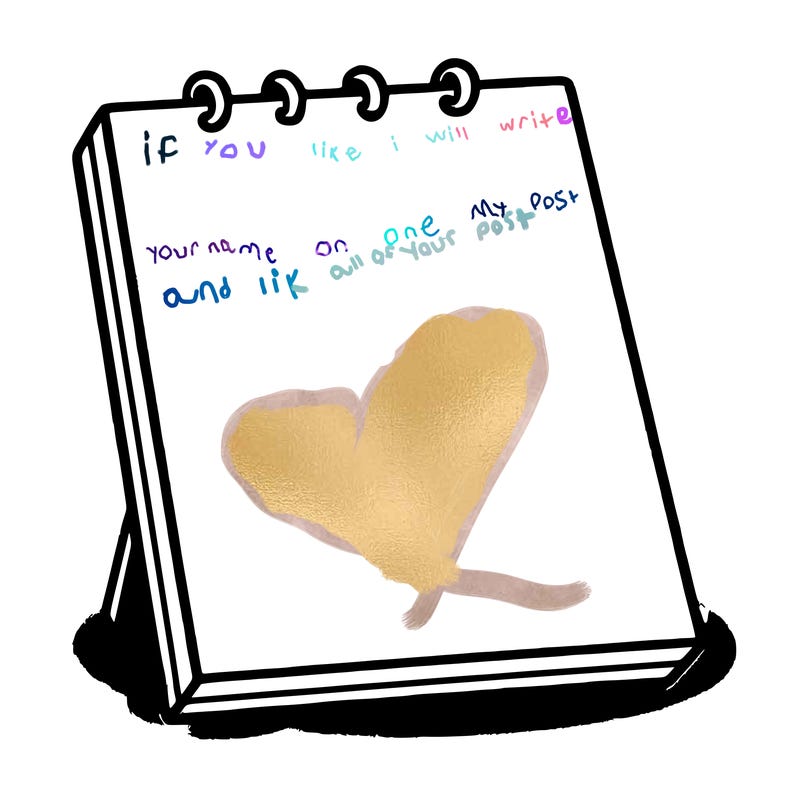 if you like i will write
your name on one My post
and lik all of your post